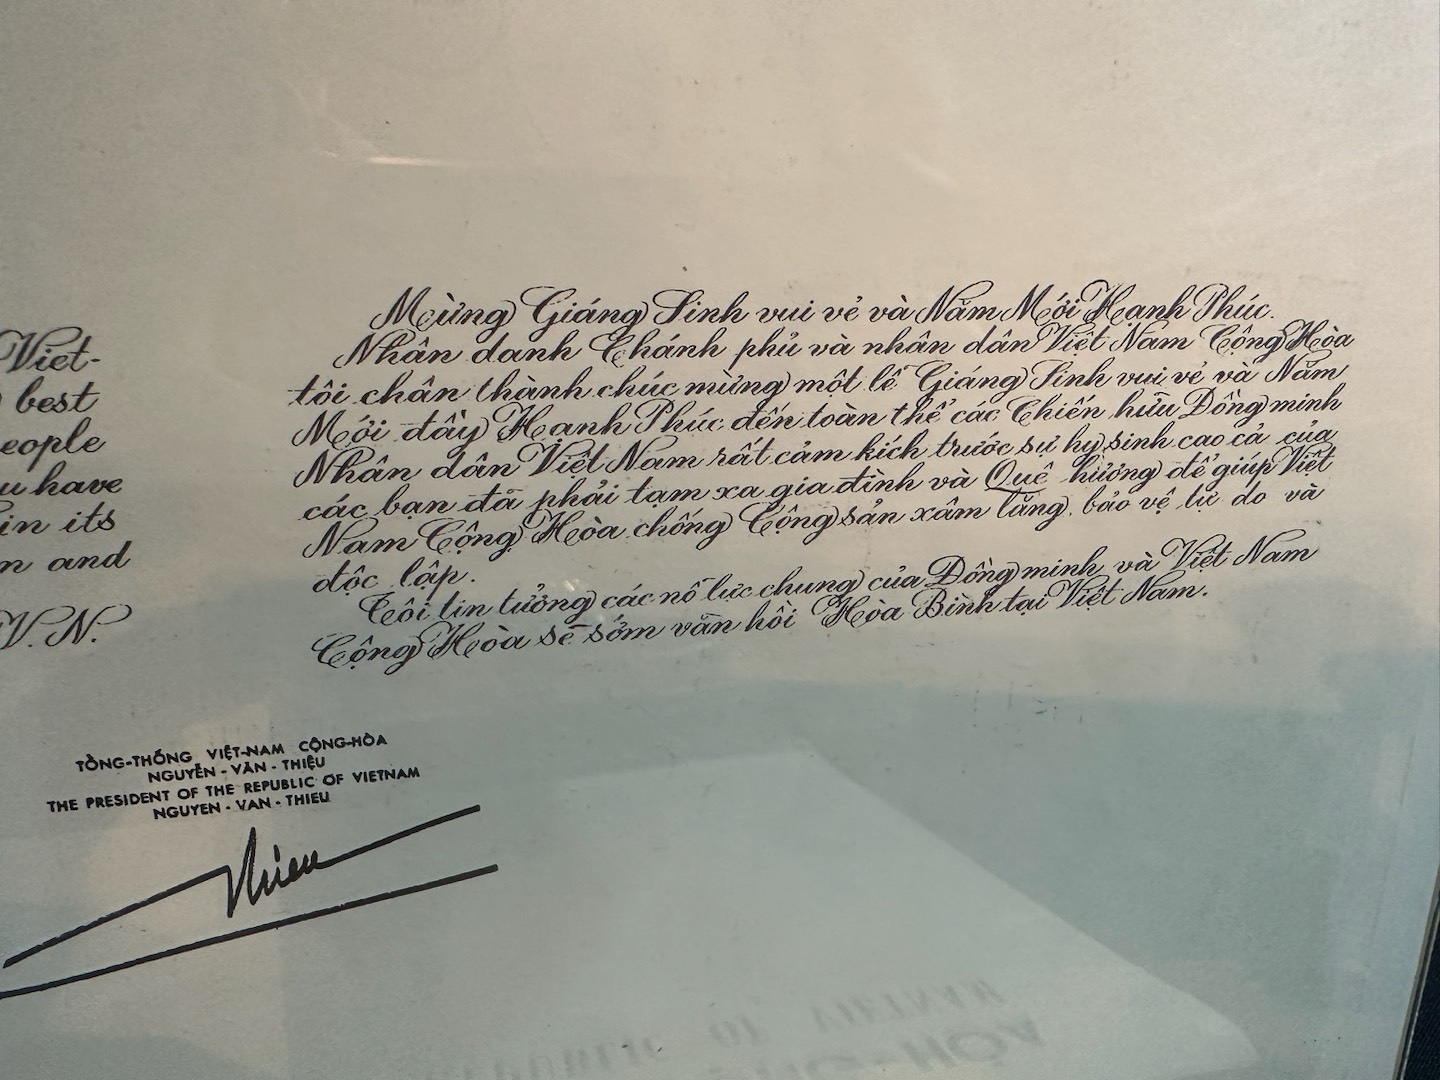 Mừng Giáng Sinh vui vẻ và Năm Mới Hạnh Phúc.
Nhân danh Chánh phủ và nhân dân Việt Nam Cộng Hòa
tôi chân thành chúc mừng một lễ Giáng Sinh vui vẻ và Năm
Mới đầy Hạnh Phúc đến toàn thể các Chiến hữu Đồng minh
Nhân dân Việt Nam rất cảm kích trước sự hy sinh cao cả của
các bạn đã phải tạm xa gia đình và Quê hương để giúp Việt
Nam Cộng Hòa chống Cộng sản xâm lăng, bảo vệ tự do và
độc lập.
Tôi tin tưởng các nỗ lực chung của Đồng minh và Việt Nam
Cộng Hòa sẽ sớm vãn hồi Hòa Bình tại Việt Nam.
Viet-
best
eople
u have
in its
n and
V.N.
TỔNG-THỐNG VIỆT-NAM CỘNG-HÒA
NGUYỄN-VĂN-THIỆU
THE PRESIDENT OF THE REPUBLIC OF VIETNAM
NGUYEN-VAN-THIEU
Thieu
OF VIETNAM
HÒA